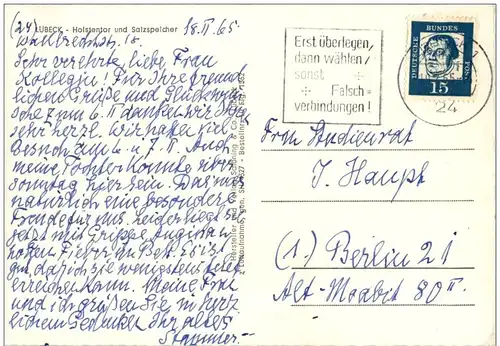 (24) LÜBECK - Holstentor und Salzspeicher 18. II 65
Sehr verehrte, liebe Frau
Kollegin! Für Ihre freund-
lichen Grüße und Glückwün-
sche z um 6. II danken wir Ihnen
sehr herzl. Wir hatten viel
Besuch am 6. u 7. II. Auch
meine Tochter konnte über
sonntag hier sein. Das war
natürlich eine besondere
Freude für uns. Leider liegt sie
jetzt mit Grippe Angina
hohem Fieber im Bett. Es ist
gut, daß ich sie wenigstens telef
erreichen kann. Meine Frau
und ich grüßen Sie in herz
lichem Gedenken Ihr alter
Stammer
Erst überlegen,
dann wählen
sonst
Falsch=
verbindungen!
DEUTSCHE BUNDES
POST
15
24
Frau Studienrat
J. Haupt
(1) Berlin 21
Alt-Moabit 80 II.